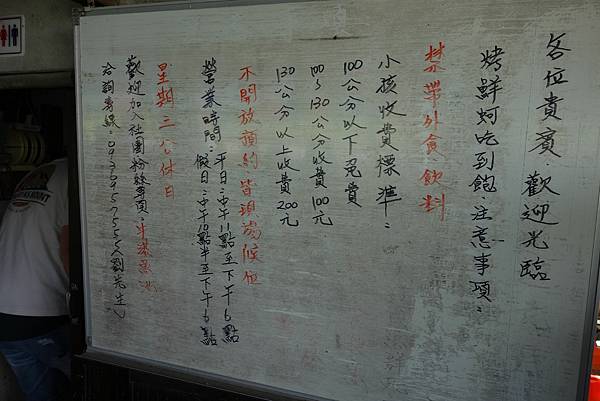 各位貴賓歡迎光臨
烤鮮蚵吃到飽.注意事項:
禁帶外食飲料
小孩收費標準:
100公分以下免費
100~130公分收費100元
130公分以上收費200元
不開放預約皆現場候位
營業時間:平日:中午11點至下午6點
假日:中午10點半至下午6點
星期三公休日
歡迎加入社團粉絲專頁:
洽詢專線: